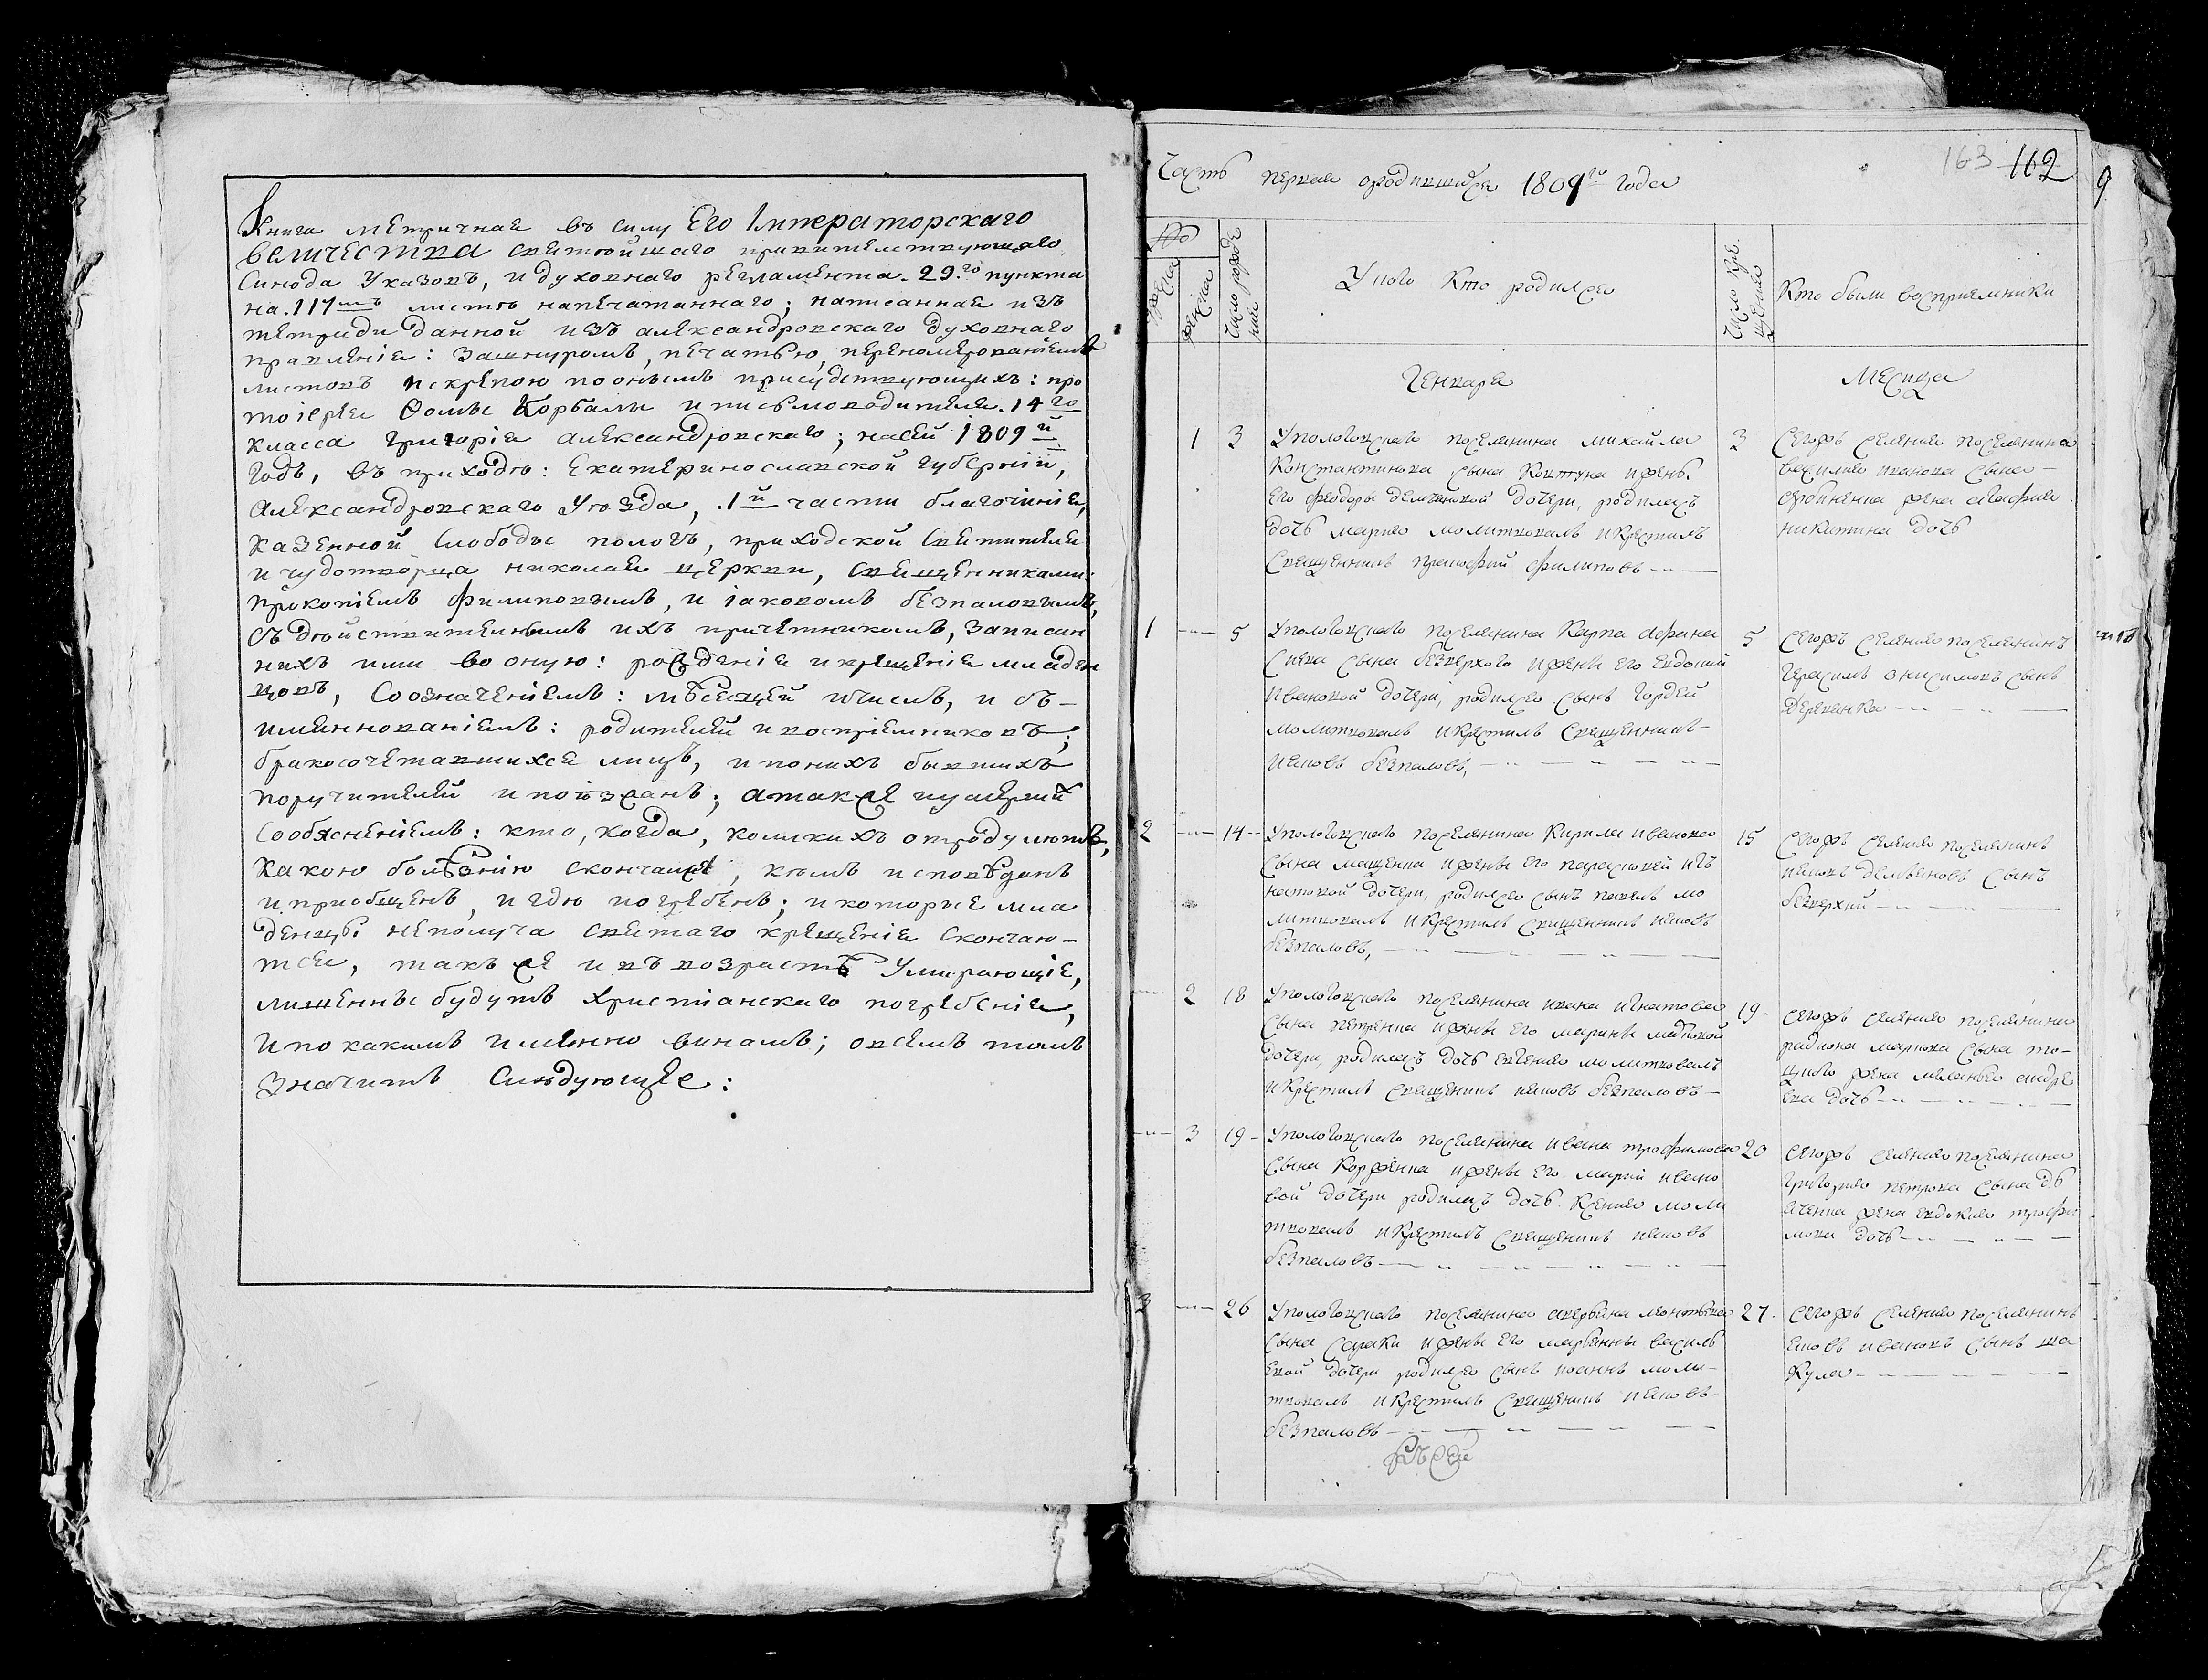 Книга метричная въ силу Его Императорскаго
величества святѣйшаго правительствующаго
Синода Указовъ, и духовнаго регламента. 29.го пункта
на. 117мъ листѣ напечатаннаго; написанная изъ
тетради данной изъ александровскаго духовнаго
правленія: зашнуромъ, печатью, перенамерованіемъ
листовъ искрепою поонымъ присудствующихъ: про
тоіерея Ѳомы Корбали иписьмоводителя. 14го
класса григорія александровскаго; насей 1809й
годъ, въ приходѣ: Екатеринославской губерніи,
Александровскаго Уѣзда, .1й части благочинія,
казенной Слободы пологъ, приходской Святителя
и чудотворца николая церкви, священниками:
прокопіемъ филиповымъ, и іаковомъ безпаловымъ,
съ дѣйствительнымъ ихъ причетникомъ, записан
нихъ ими во оную: рожденія икрещенія младен
цовъ, Соозначеніемъ: мѣсяцей ичиселъ, и съ-
именнованіемъ: родителей ивоспріемниковъ;
бракосочетавшихся лицъ, ипонихъ бывшихъ
поручителей и
Сообясненіемъ: кто, когда, коликихъ отроду лѣтъ,
какою болѣзнію скончался, кѣмъ исповѣданъ
и пріобщенъ, игдѣ погребенъ; икоторые мла
денцы неполуча святаго крещенія скончаю-
тся, такъже ивъвозрастѣ Умирающіе,
лишенные будутъ христіанскаго погребенія,
ипо какимъ именно винамъ; овсемъ томъ
значитъ Слѣдующее:
163 162
Часть первая ородившихся 1809го года
9
Число рожде
ния
Укого Кто родился
Число кре
щения
Кто были восприемники
Генваря
Месяца
1 3 Упологовскаго поселянина михайла
Константинова сына Ковтуна ижены
его феодоры демяновой дочери, родилась
дочь мария молитвовалъ икрестилъ
Священникъ прокофий филиповъ
3 Сегожъ селения поселянина
василия иванова сына
жена агафия
никитина дочь
1 5 Упологовскаго поселянина Карпа Афана
сиева сына безверхого ижены его евдокии
ивановой дочери, родился сынъ гордей
молитвовалъ икрестилъ Священникъ-
иаковъ безпаловъ,
5 Сегожъ селения поселянинъ
герасимъ онисимовъ сынъ
деревянка
2 14 Упологовскаго поселянина Кирила иванова
сына мащенка ижены его парасковей иг
натовой дочери, родился сынъ павелъ мо
литвовалъ икрестилъ священникъ иаковъ
безпаловъ,
15 Сегожъ селения поселянинъ
иаковъ демьяновъ сынъ
безверхий
2 18 Упологовскаго поселянина ивана игнатова
сына петренка ижены его марины
дочери, родилась дочь евгения молитвовалъ
икрестилъ священикъ иаковъ безпаловъ
19 Сегожъ селения поселянина
радиона маркова сына то-
жена меланья андре
ева дочь
3 19 Упологовскаго поселянина ивана трофимова
сына Коржѣнка ижены его марии ивано
вой дочери родилась дочь. Ксения моли
твовалъ икрестилъ священикъ иаковъ
безпаловъ
20 Сегожъ селения поселянина
григория петрова сына дь
яченка жена евдокия трофи
мова дочь
3 26 Упологовскаго поселянина аверьяна леонтьева
сына Сараки ижены его марьяны василь
евой дочери родился сынъ иоаннъ моли-
твовалъ икрестилъ священикъ иаковъ
безпаловъ
27. Сегожъ селения поселянинъ
иванов сынъ ша
кула